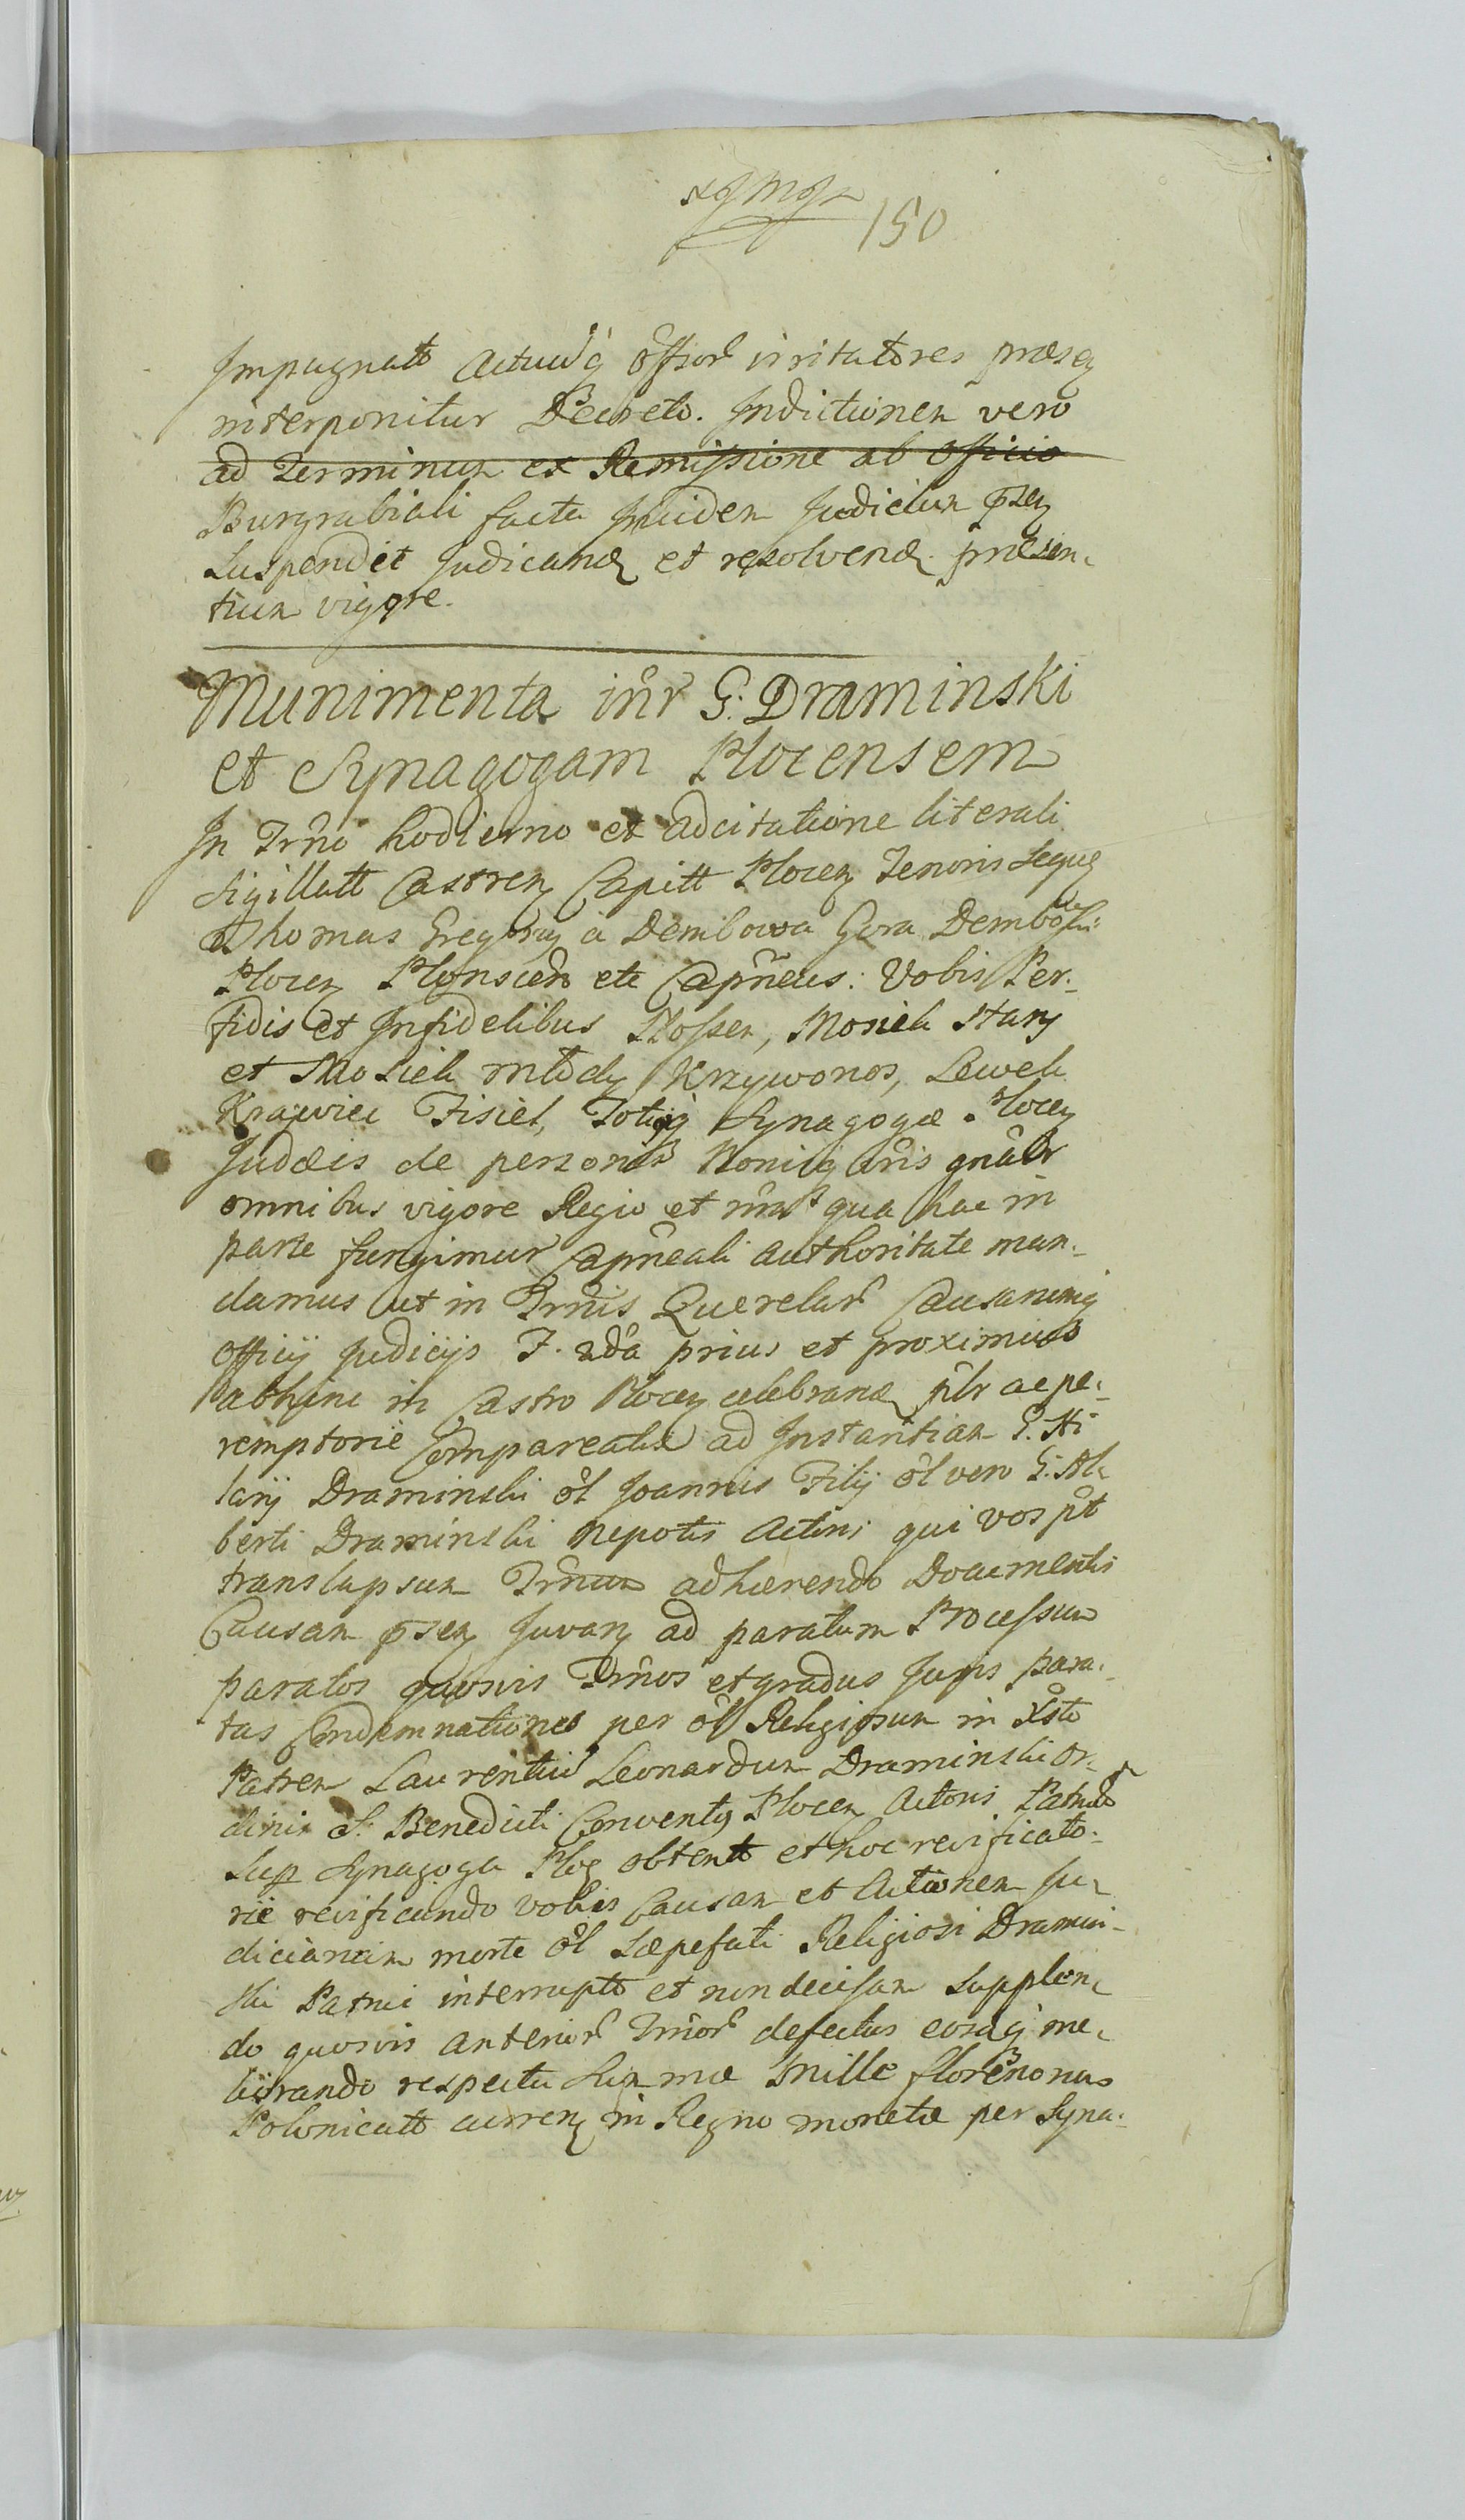 150
Impugnatt Actuuq offior irritatores præseq
interponitur Decreto. Indictionem vero
ad Terminum ex Remissione ab Officio
Burgrabiali facta Ibidem Judicium psen
suspendit Judicand et resolvend præsen-
tium vigore.
Munimenta inr G. Draminski
et Synagogam Plocensem
In Trno hodierno et adcitatione literali
sigillatt Castren Capitt Plocen Tenoris seque
Thomas Gregorij a Dembowa Gora Dembowski
Plocen Plonscen etc Capneus: Vobis Per-
fidis et Infidelibus Mossen, Mosiek Stary
et Mosiek mlody Krzywonos, Lewek
Krawiec Fisiel, Totiq Synagogæ Plocen
Judæis de personis Bonisq vris gnaltr
omnibus vigore Regio et nra qua hac in
parte fungimur Capneali authoritate man-
damus ut in Trnis Querelar Causarumq
Officij Judicijs F. 2da prius et proximius
abhinc in Castro Plocen celebrand plr ac pe-
remptorie Compareatis ad Instantiam G. Hi
larij Draminski ol Joannis Filij ol vero G. Al-
berti Draminski Nepotis Actoris qui vos pt
translapsum Trnum adhærendo Documentis
Causam psen Juvan ad paratum Processum
paratos quosvis Trnos et gradus Juris para-
tas Condemnationes per ol Religiosum in Xsto
Patrem Laurentiu Leonardum Draminski Or-
dinis S. Benedicti Conventus Plocen Actoris Patruum
sup Synagoga Ploc obtent et hoc reificato-
rie reificando vobis Causam et Actionem Ju-
diciariam morte ol sæpefati Religiosi Dramin-
ski Patrui interrupt et non decisam supplen-
do quosvis anterior Trnor defectus eosq me-
liorando respectu summæ mille florenorum
Polonicatt curren in Regno monetæ per Syna-